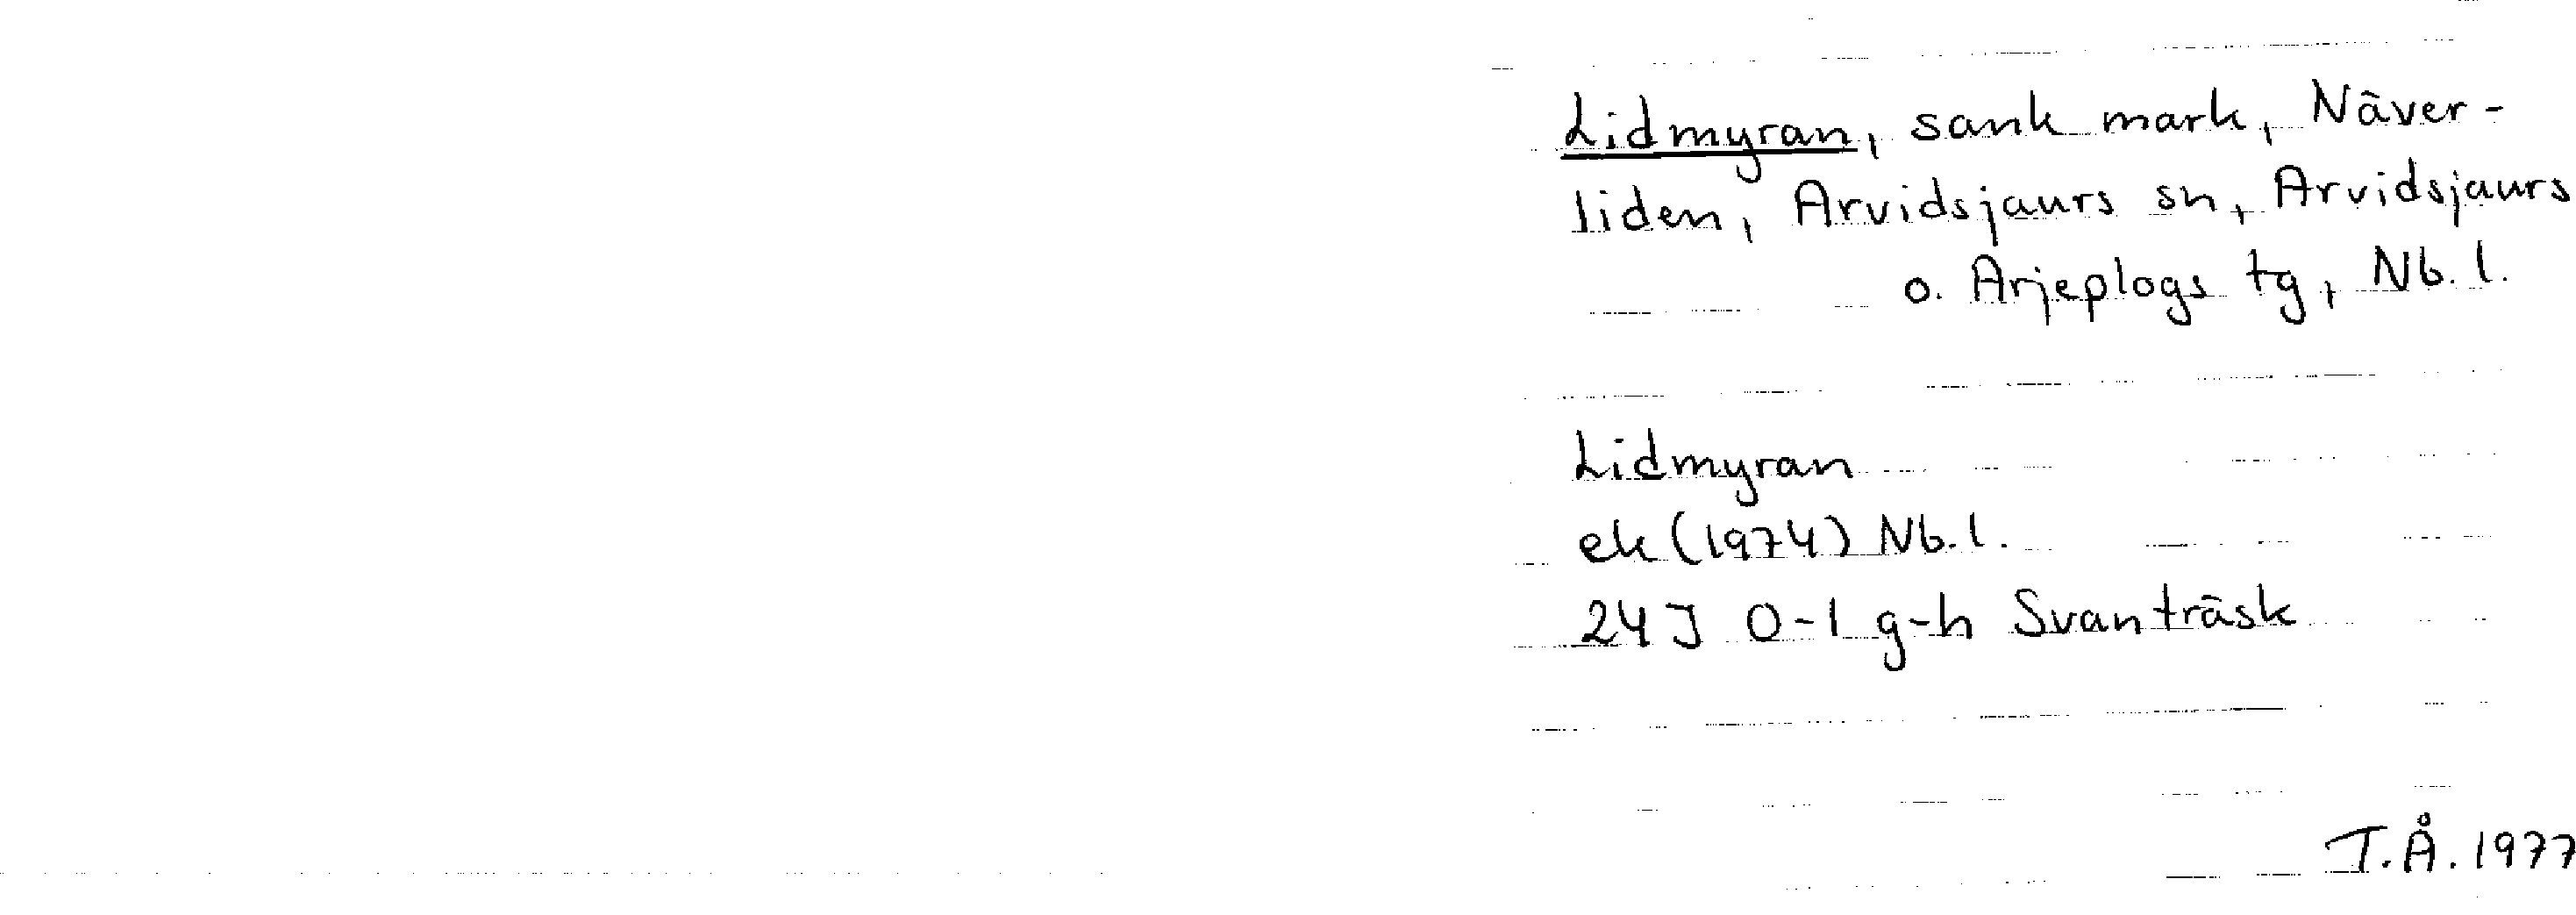 Lidmyran, sank mark, Näver-
liden, Arvidsjaurs sn, Arvidsjaurs
o. Arjeplogs tg, Nb. l.
Lidmyran
ek (1974) Nb. l.
24 J 0-1 g-h Svanträsk
T.Å. 1977